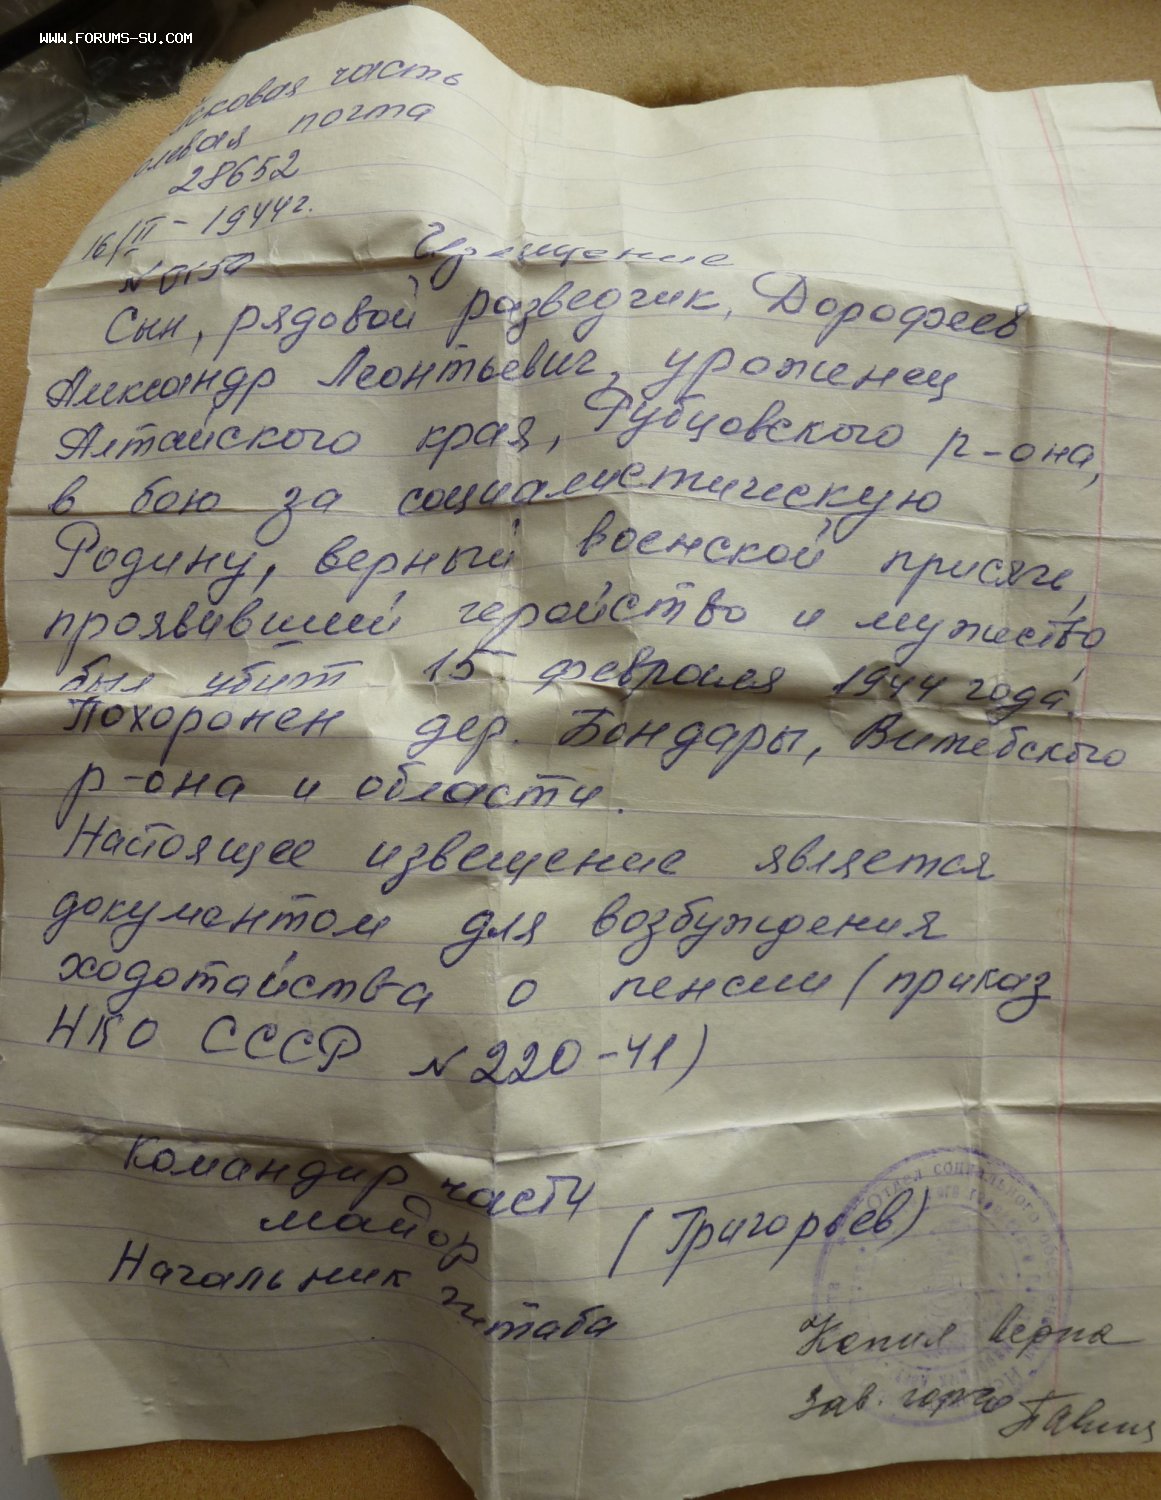 WWW.FORUMS-SU.COM
сковая часть
олевая почта
28652
16/III - 1944г.
N 0150
Извещение
Сын, рядовой разведчик, Дорофеев
Александр Леонтьевич, уроженец
Алтайского края, Рубцовского р-она,
в бою за социалистическую
Родину, верный воснской присяге,
проявивший геройство и мужество
был убит 15 февраля 1944 года.
Похоронен дер. Бондары, Витебского
р-она и области.
Настоящее извещение является
документом для возбуждения
ходотайства о пенсии (приказ
НКО СССР N 220-41)
Командир части
майор (Григорьев)
Начальник штаба
Отдел социального обеспечения
Копия верна
Зав. горсо